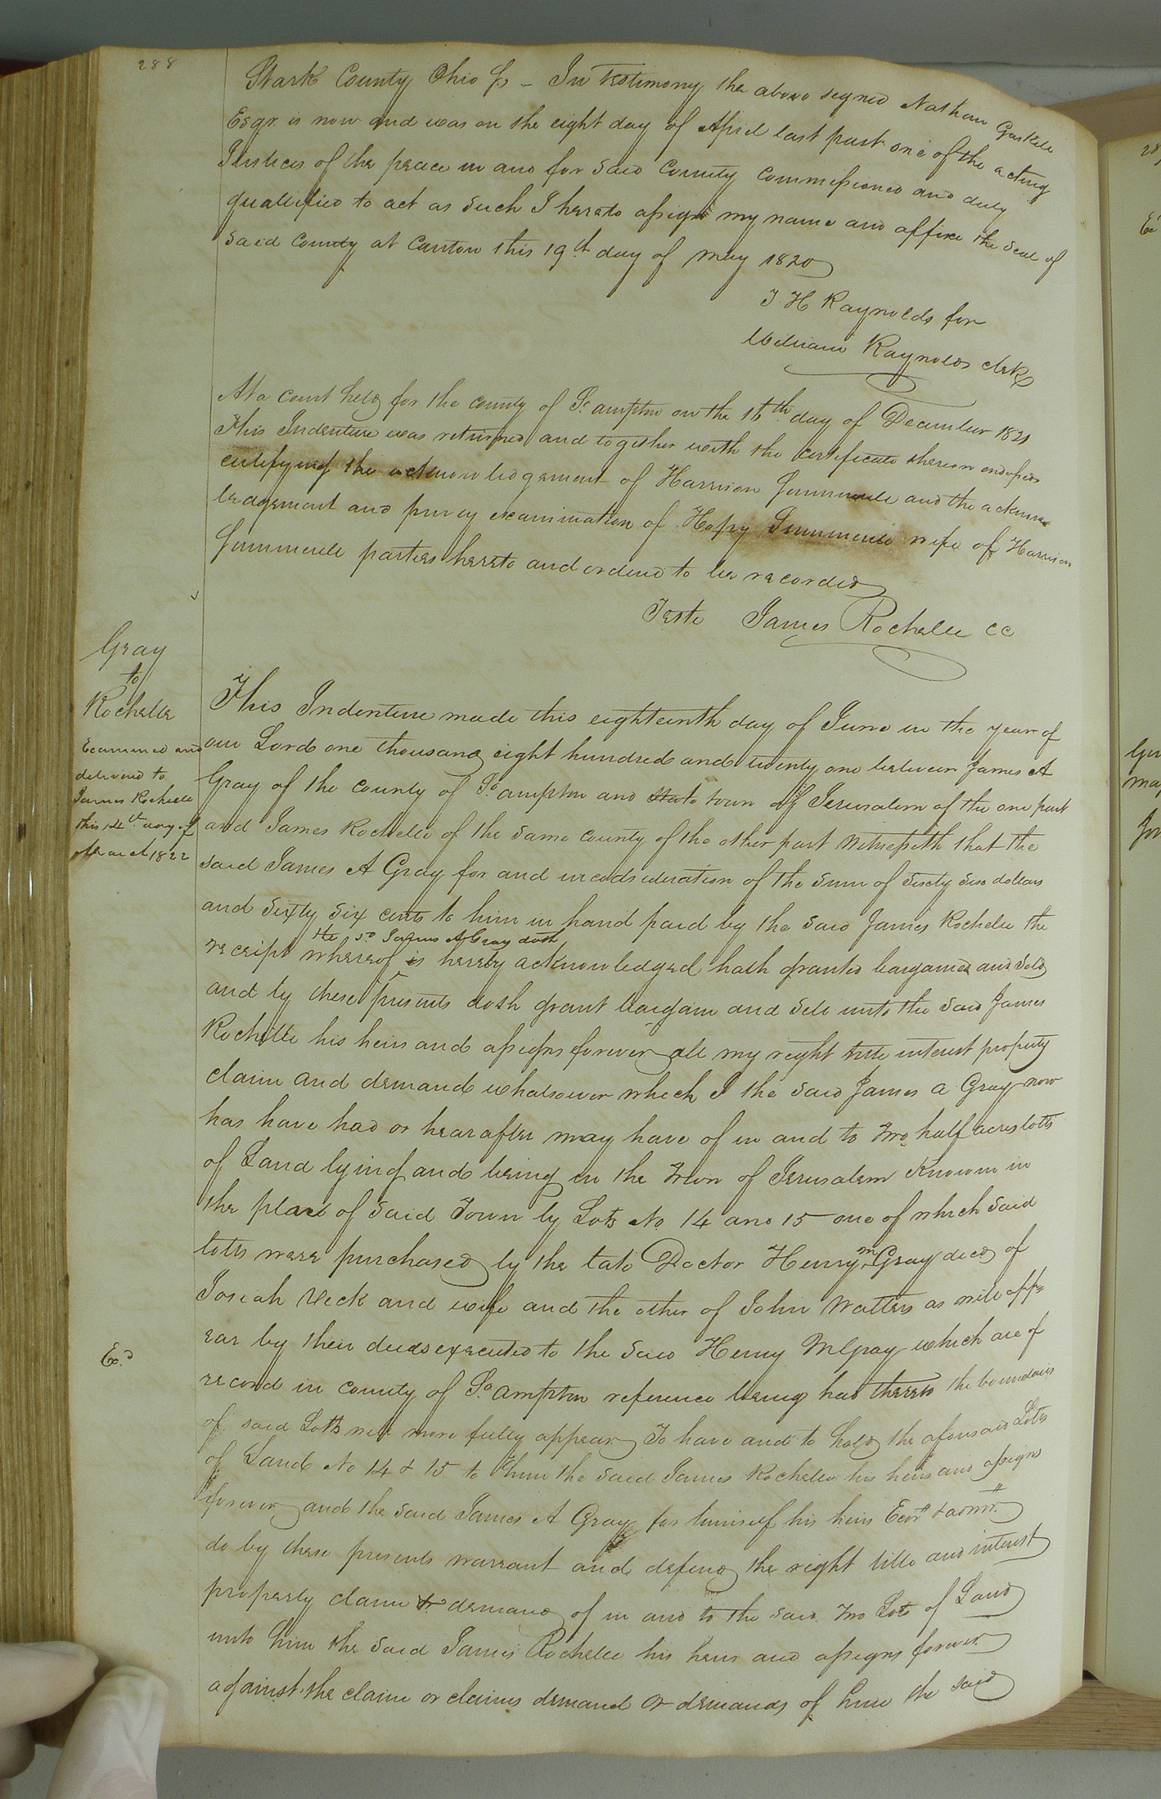 288
Stark County Ohio ss - In testimony the above signed Nathan Gaskill
Esqr. is now and was on the eight day of April last past one of the acting
Justices of the peace in and for said County commissioned and duly
qualified to act as such I hereto assign my name and affixe the seal of
said County at Canton this 19th day of May 1820
T H Raynolds for
William Raynolds clrk
At a court held for the county of So ampton on the 18th day of December 1821
This Indenture was returned and together with the certificate thereon endorsed
certifying the acknowledgement of Harrison and the acknow
ledgement and privy examination of wife of Harrison
parties hereto and ordered to be recorded
Teste James Rochelle CC
Gray
to
Rochelle
Examined and
delivered to
James Rochelle
this 14th day of
March 1822
This Indenture made this eighteenth day of June in the year of
our Lord one thousand eight hundred and twenty one between James A
Gray of the county of So ampton and town of Jerusalem of the one part
and James Rochelle of the same county of the other part Witnesseth that the
said James A Gray for and in consideration of the sum of Sixty Six dollars
and Sixty Six cents to him in hand paid by the said James Rochelle the
the sd James A Gray doth
receipt whereof is hereby acknowledged hath granted bargained and sold
and by these presents doth grant bargain and sell unto the said James
Rochelle his heirs and assigns forever all my right title interest property
claim and demand whatsoever which I the said James A Gray now
has have had or hearafter may have of in and to two half acres lotts
of Land lying and being in the Town of Jerusalem Known in
the plan of said Town by Lots No 14 and 15 one of which said
lotts were purchased by the late Doctor Henry M Gray decd of
Josiah Vick and wife and the other of John Watters as will app
ear by their deeds executed to the said Henry M Gray which are of
Exd
record in county of So ampton reference being had thereto the boundaries
of said Lotts will more fully appear To have and to hold the aforesaid Lots
of Land No 14 & 15 to him the said James Rochelle his heirs and assigns
forever and the said James A Gray for himself his heirs Exrs & admrs
do by these presents warrant and defend the right title and interest
property claim & demand of in and to the said two Lots of Land
unto him the said James Rochelle his heirs and assigns forever
against the claim or claims demand or demands of him the said